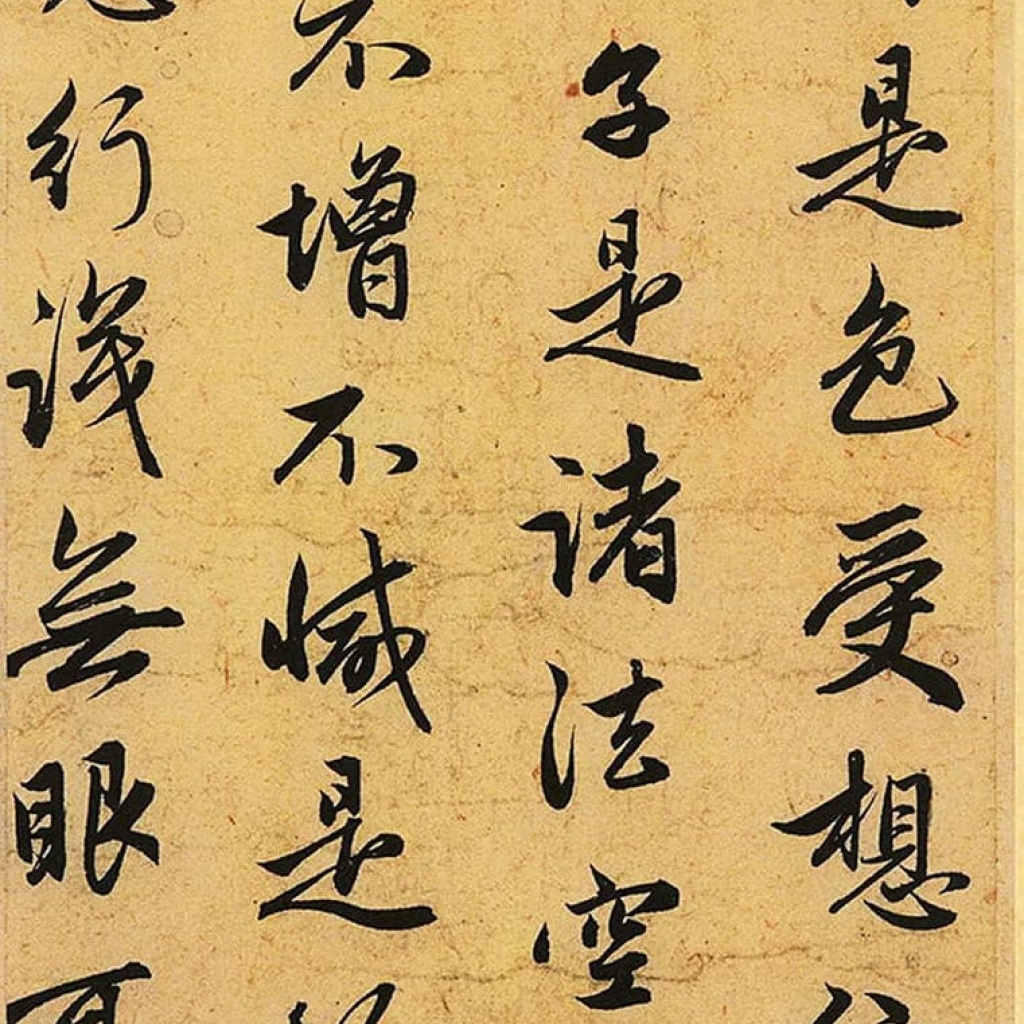 是色受想
子是諸法空
不增不減是
行識無眼耳